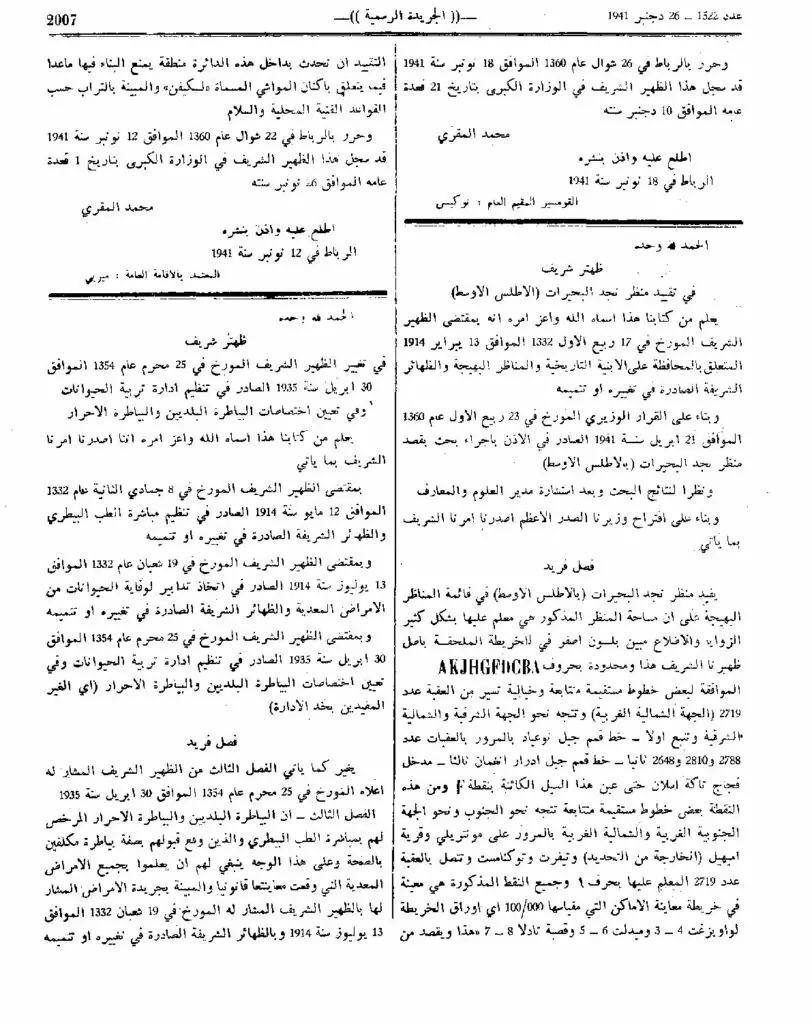 عدد 1522 — 26 دجنبر 1941
—(( الجريدة الرسمية ))—
2007
وحرر بالرباط في 26 شوال عام 1360 الموافق 18 نونبر سنة 1941
قد سجل هذا الظهير الشريف في الوزارة الكبرى بتاريخ 21 قعدة
عامه الموافق 10 دجنبر سنته
محمد المقري
اطلع عليه واذن بنشره
الرباط في 18 نونبر سنة 1941
القومسير المقيم العام : نوكيس
الحمد لله وحده
ظهير شريف
في تقييد منظر نجد البحيرات (الاطلس الاوسط)
يعلم من كتابنا هذا اسماه الله واعز امره انه بمقتضى الظهير
الشريف المورخ في 17 ربيع الاول 1332 الموافق 13 يبراير 1914
المتعلق بالمحافظة على الابنية التاريخية والمناظر البهيجة والظهائر
الشريفة الصادرة في تغييره او تتميمه
وبناء على القرار الوزيري المورخ في 23 ربيع الاول عام 1360
الموافق 21 ابريل سنة 1941 الصادر في الاذن باجراء بحث بقصد
منظر نجد البحيرات (بالاطلس الاوسط)
ونظرا لنتائج البحث وبعد استشارة مدير العلوم والمعارف
وبناء على اقتراح وزيرنا الصدر الاعظم اصدرنا امرنا الشريف
بما ياتي
فصل فريد
يقيد منظر نجد البحيرات (بالاطلس الاوسط) في قائمة المناظر
البهيجة على ان مساحة المنظر المذكور هي معلم عليها بشكل كثير
الزوايا والاضلاع مبين بلون اصفر في الخريطة الملحقة باصل
ظهيرنا الشريف هذا ومحدودة بحروف AKJHGFDCBA
الموافقة لبعض خطوط مستقيمة متتابعة وخيالية تسير من العقبة عدد
2719 (الجهة الشمالية الغربية) وتتجه نحو الجهة الشرقية والشمالية
الشرقية وتتبع اولا — خط قمم جبل نوعياد بالمرور بالعقبات عدد
2788 و2810 و2648 ثانيا — خط قمم جبل ادرار انغمان ثالثا — مدخل
فجاج تاكة املان حتى عين هذا السيل الكائنة بنقطة F ومن هذه
النقطة بعض خطوط مستقيمة متتابعة تتجه نحو الجنوب ونحو الجهة
الجنوبية الغربية والشمالية الغربية بالمرور على مونتريلي وقرية
اميهيل (الخارجة من التحديد) وتيفرت وتوكنامست وتتصل بالعقبة
عدد 2719 المعلم عليها بحرف A وجميع النقط المذكورة هي معينة
في خريطة معاينة الاماكن التي مقياسها 100/000 اي اوراق الخريطة
لواويزغت 4 — 3 وميدلت 6 — 5 وقصبة تادلا 8 — 7 «هذا ويقصد من
التقييد ان تحدث بداخل هذه الدائرة منطقة يمنع البناء فيها ماعدا
فيما يتعلق باكنان المواشي المسماة «لكيفن» والمبينة بالتراب حسب
القواعد الفنية المحلية والسلام
وحرر بالرباط في 22 شوال عام 1360 الموافق 12 نونبر سنة 1941
قد سجل هذا الظهير الشريف في الوزارة الكبرى بتاريخ 1 قعدة
عامه الموافق 26 نونبر سنته
محمد المقري
اطلع عليه واذن بنشره
الرباط في 12 نونبر سنة 1941
المعتمد بالاقامة العامة : ميريي
الحمد لله وحده
ظهير شريف
في تغيير الظهير الشريف المورخ في 25 محرم عام 1354 الموافق
30 ابريل سنة 1935 الصادر في تنظيم ادارة تربية الحيوانات
وفي تعيين اختصاصات البياطرة البلديين والبياطرة الاحرار
يعلم من كتابنا هذا اسماه الله واعز امره اننا اصدرنا امرنا
الشريف بما ياتي
بمقتضى الظهير الشريف المورخ في 8 جمادي الثانية عام 1332
الموافق 12 مايو سنة 1914 الصادر في تنظيم مباشرة الطب البيطري
والظهائر الشريفة الصادرة في تغييره او تتميمه
وبمقتضى الظهير الشريف المورخ في 19 شعبان عام 1332 الموافق
13 يوليوز سنة 1914 الصادر في اتخاذ تدابير لوقاية الحيوانات من
الامراض المعدية والظهائر الشريفة الصادرة في تغييره او تتميمه
وبمقتضى الظهير الشريف المورخ في 25 محرم عام 1354 الموافق
30 ابريل سنة 1935 الصادر في تنظيم ادارة تربية الحيوانات وفي
تعيين اختصاصات البياطرة البلديين والبياطرة الاحرار (اي الغير
المقيدين بخد الادارة)
فصل فريد
يغير كما ياتي الفصل الثالث من الظهير الشريف المشار له
اعلاه المورخ في 25 محرم عام 1354 الموافق 30 ابريل سنة 1935
الفصل الثالث — ان البياطرة البلديين والبياطرة الاحرار المرخص
لهم بمباشرة الطب البيطري والذين وقع قبولهم بصفة بياطرة مكلفين
بالصحة وعلى هذا الوجه ينبغي لهم ان يعلموا بجميع الامراض
المعدية التي وقعت معاينتها قانونيا والمبينة بجريدة الامراض المشار
لها بالظهير الشريف المشار له المورخ في 19 شعبان 1332 الموافق
13 يوليوز سنة 1914 وبالظهائر الشريفة الصادرة في تغييره او تتميمه